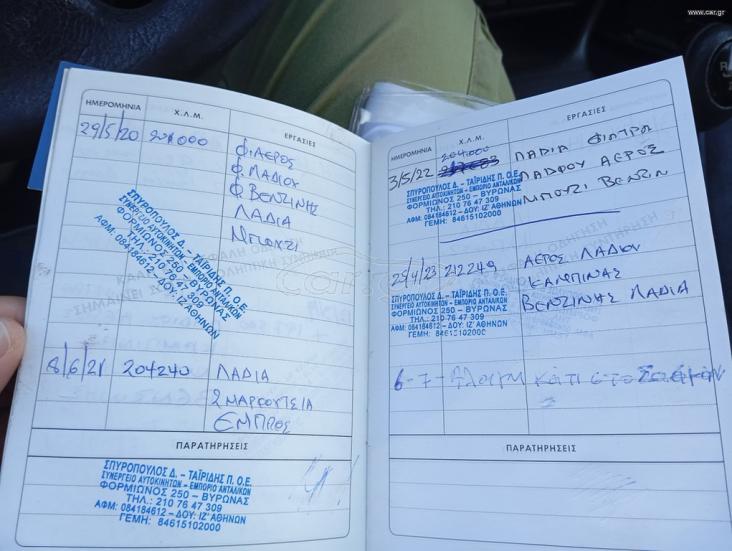 www.car.gr
ΗΜΕΡΟΜΗΝΙΑ Χ.Λ.Μ. ΕΡΓΑΣΙΕΣ
29/5/20 201000 Φ. ΑΕΡΟΣ
Φ. ΛΑΔΙΟΥ
Φ. ΒΕΝΖΙΝΗΣ
ΛΑΔΙΑ
ΜΠΟΥΖΙ
ΣΠΥΡΟΠΟΥΛΟΣ Δ. – ΤΑΪΡΙΔΗΣ Π. Ο.Ε.
ΣΥΝΕΡΓΕΙΟ ΑΥΤΟΚΙΝΗΤΩΝ – ΕΜΠΟΡΙΟ ΑΝΤΑΛΙΚΩΝ
ΦΟΡΜΙΩΝΟΣ 250 – ΒΥΡΩΝΑΣ
ΤΗΛ.: 210 76 47 309
ΑΦΜ: 084184612 – ΔΟΥ: ΙΖ΄ ΑΘΗΝΩΝ
8/6/21 204240 ΛΑΔΙΑ
2 ΜΑΡΣΟΥΕΙΑ
ΕΜΠΡΟΣ
ΠΑΡΑΤΗΡΗΣΕΙΣ
ΣΠΥΡΟΠΟΥΛΟΣ Δ. – ΤΑΪΡΙΔΗΣ Π. Ο.Ε.
ΣΥΝΕΡΓΕΙΟ ΑΥΤΟΚΙΝΗΤΩΝ – ΕΜΠΟΡΙΟ ΑΝΤΑΛΙΚΩΝ
ΦΟΡΜΙΩΝΟΣ 250 – ΒΥΡΩΝΑΣ
ΤΗΛ.: 210 76 47 309
ΑΦΜ: 084184612 – ΔΟΥ: ΙΖ΄ ΑΘΗΝΩΝ
ΓΕΜΗ: 84615102000
ΗΜΕΡΟΜΗΝΙΑ Χ.Λ.Μ. ΕΡΓΑΣΙΕΣ
3/5/22 204.000 ΛΑΔΙΑ ΦΙΛΤΡΑ
ΛΑΔΙΟΥ ΑΕΡΟΣ
ΜΠΟΥΖΙ ΒΕΝΖΙΝ
ΣΠΥΡΟΠΟΥΛΟΣ Δ. – ΤΑΪΡΙΔΗΣ Π. Ο.Ε.
ΣΥΝΕΡΓΕΙΟ ΑΥΤΟΚΙΝΗΤΩΝ – ΕΜΠΟΡΙΟ ΑΝΤΑΛΙΚΩΝ
ΦΟΡΜΙΩΝΟΣ 250 – ΒΥΡΩΝΑΣ
ΤΗΛ.: 210 76 47 309
ΑΦΜ: 084184612 – ΔΟΥ: ΙΖ΄ ΑΘΗΝΩΝ
ΓΕΜΗ: 84615102000
/4/23 212249 ΑΕΡΟΣ ΛΑΔΙΟΥ
ΚΑΜΠΙΝΑΣ
ΒΕΝΖΙΝΗΣ ΛΑΔΙΑ
ΣΠΥΡΟΠΟΥΛΟΣ Δ. – ΤΑΪΡΙΔΗΣ Π. Ο.Ε.
ΣΥΝΕΡΓΕΙΟ ΑΥΤΟΚΙΝΗΤΩΝ – ΕΜΠΟΡΙΟ ΑΝΤΑΛΙΚΩΝ
ΦΟΡΜΙΩΝΟΣ 250 – ΒΥΡΩΝΑΣ
ΤΗΛ.: 210 76 47 309
ΑΦΜ: 084184612 – ΔΟΥ: ΙΖ΄ ΑΘΗΝΩΝ
ΓΕΜΗ: 84615102000
6-7- κάτι στο
ΠΑΡΑΤΗΡΗΣΕΙΣ